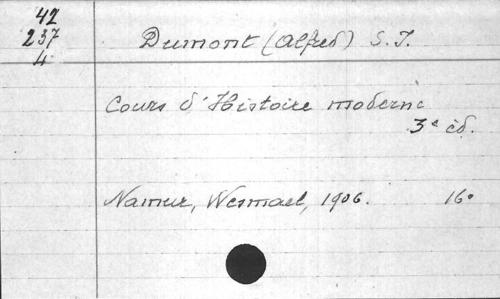 42
237
4
Dumont (Alfred) S.J.
Cours d'Histoire moderne
3e éd.
Namur, Wesmael, 1906. 16o